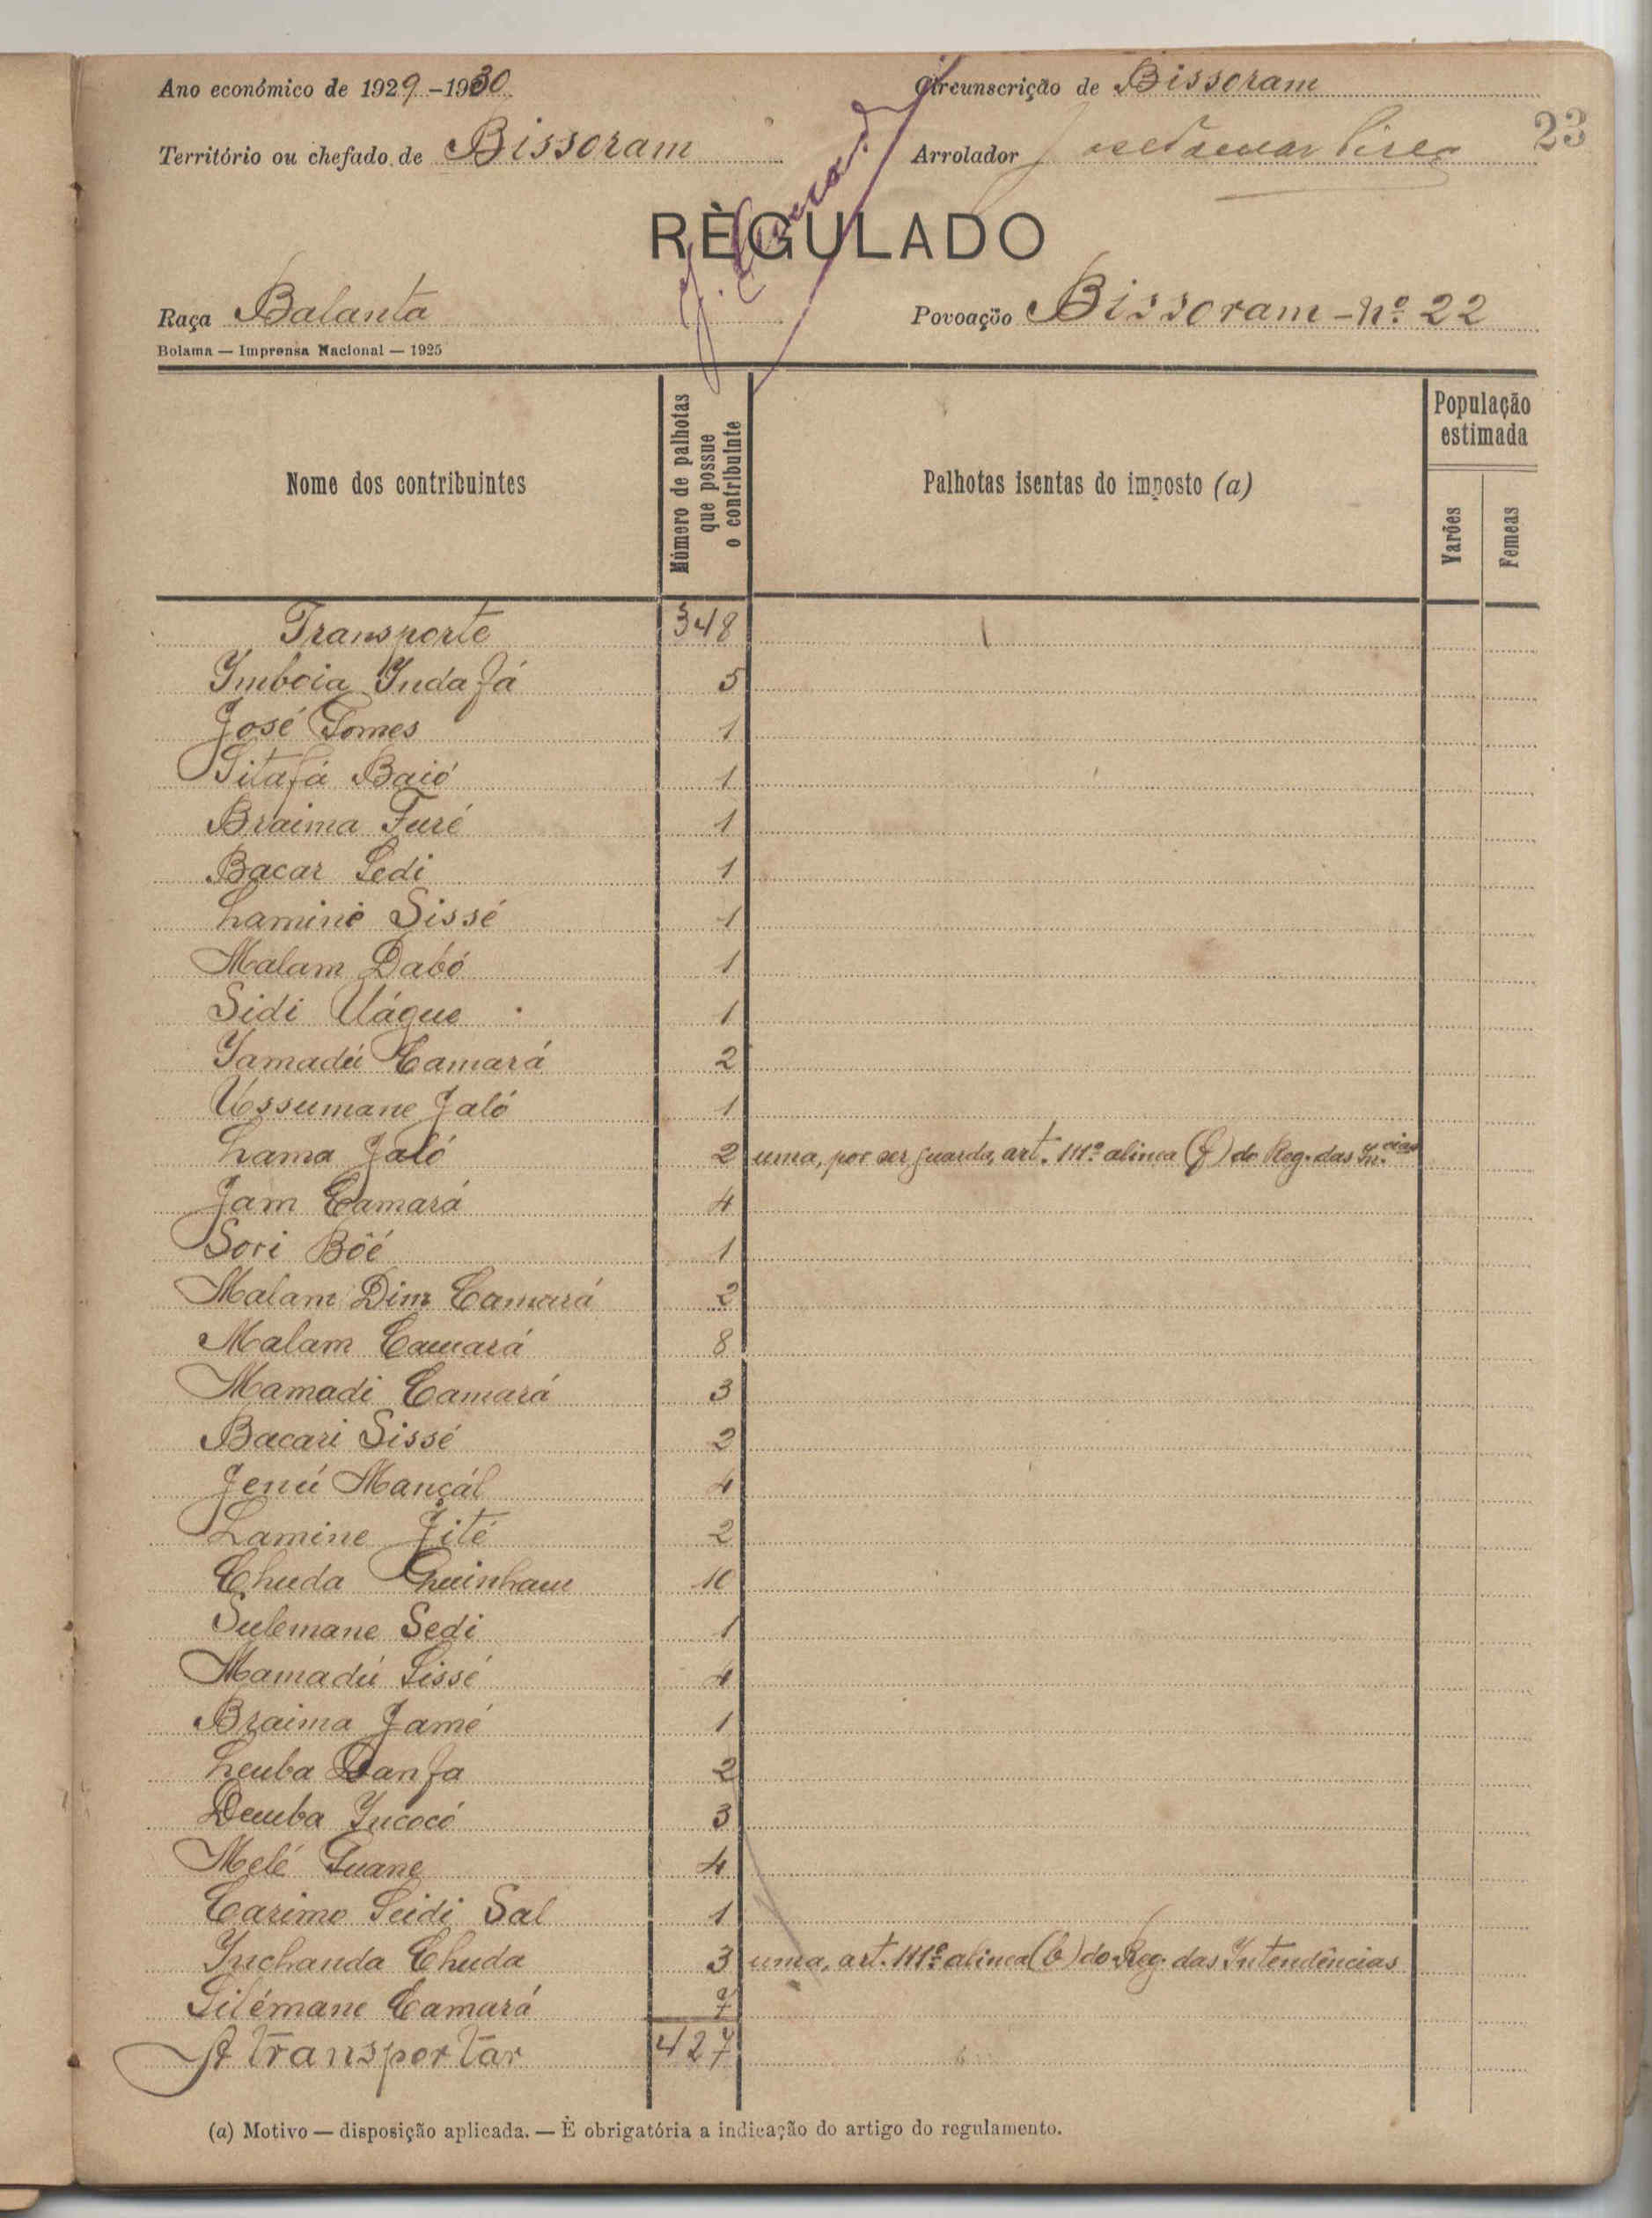 Ano económico de 1929-1930
Circunscrição de Bissoram
23
Território ou chefado de Bissoram
Arrolador
RÈGULADO
Raça Balanta
Povoação Bissoram - nº 22
Bolama — Imprensa Nacional — 1925
Nome dos contribuintes
Número de palhotas que possue o contribuinte
Palhotas isentas do imposto (a)
População estimada
Varões
Femeas
Transporte 348
Imboia Indafá 5
José Gomes 1
Sitafá Baió 1
Braima Turé 1
Bacar Sedi 1
Lamine Sissé 1
Malam Dabó 1
Sidi Uágue 1
Iamadú Camará 2
Ussumane Jaló 1
Lama Jaló 2 uma, por ser guarda, art. 111º alinea (f) do Reg. das In.cias
Jam Camará 4
Sori Bôé 1
Malam Dim Camará 2
Malam Camará 8
Mamadi Camará 3
Bacari Sissé 2
Jenú Mançál 4
Lamine Jité 2
Chuda 10
Sulemane Sedi 1
Mamadú Sissé 4
Braima Jamé 1
Leuba Danfa 2
Demba Incocó 3
Melé Tuane 4
Carimo Seidi Sal 1
Inchanda Chuda 3 uma, art. 111º alinea (b) do Reg. das Intendências
Silémane Camará 7
A transportar 427
(a) Motivo — disposição aplicada. — É obrigatória a indicação do artigo do regulamento.